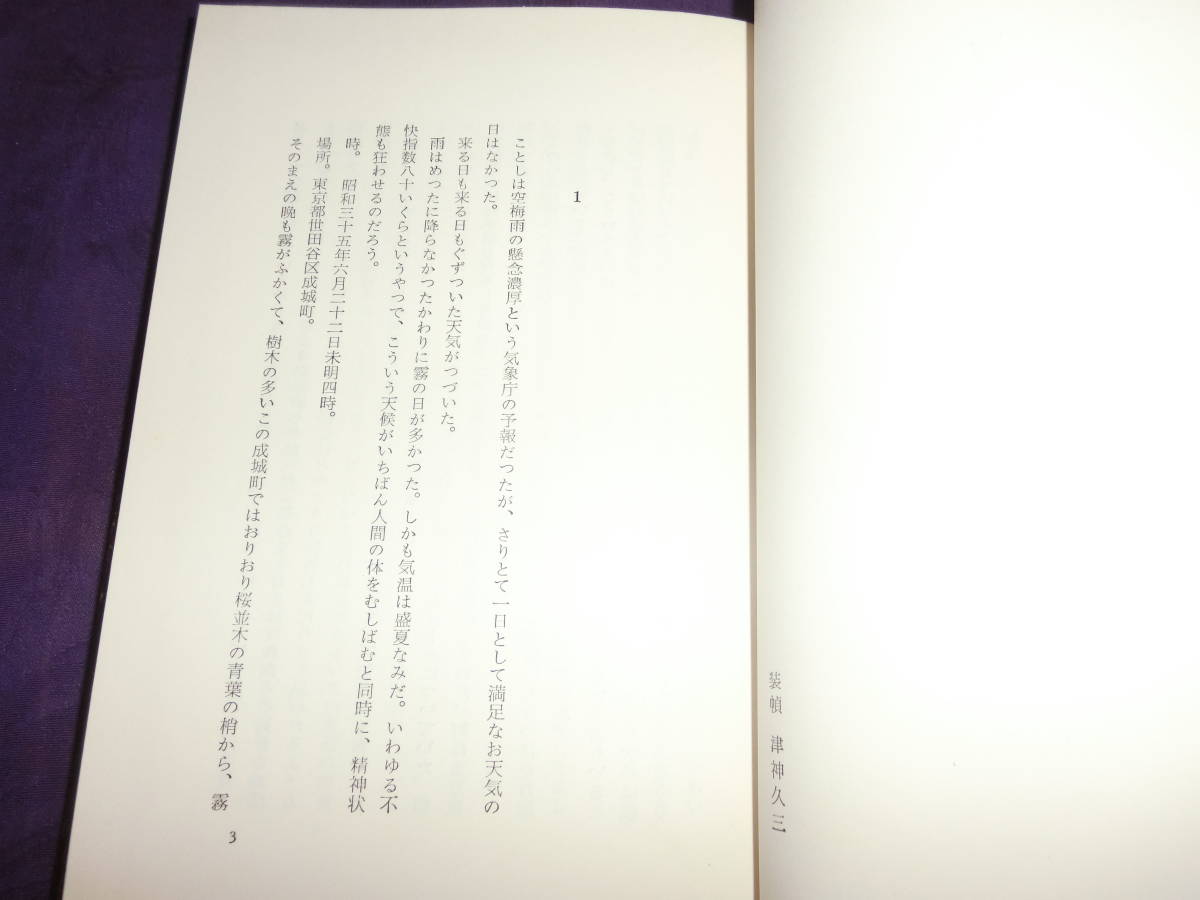 装幀　津神久三
1
ことしは空梅雨の懸念濃厚という気象庁の予報だつたが、さりとて一日として満足なお天気の
日はなかつた。
来る日も来る日もぐずついた天気がつづいた。
雨はめつたに降らなかつたかわりに霧の日が多かつた。しかも気温は盛夏なみだ。いわゆる不
快指数八十いくらというやつで、こういう天候がいちばん人間の体をむしばむと同時に、精神状
態も狂わせるのだろう。
時。　昭和三十五年六月二十二日未明四時。
場所。東京都世田谷区成城町。
そのまえの晩も霧がふかくて、樹木の多いこの成城町ではおりおり桜並木の青葉の梢から、霧
3